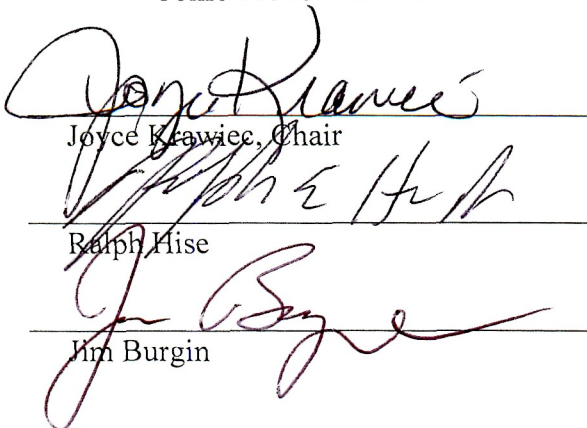 Joyce Krawiec
Joyce Krawiec, Chair
Ralph E Hise
Ralph Hise
Jim Burgin
Jim Burgin